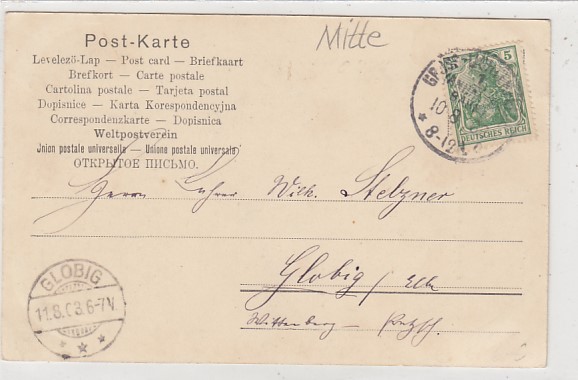 Mitte
Post-Karte
Levelezö-Lap — Post card — Briefkaart
Brefkort — Carte postale
Cartolina postale — Tarjeta postal
Dopisnice — Karta Korespondencyjna
Correspondenzkarte — Dopisnica
Weltpostverein
Union postale universelle — Unione postale universale
ОТКРЫТОЕ ПИСЬМО.
5
DEUTSCHES REICH
10 8
* 8-12
Herrn Lehrer Wilh. Stelzner
Globig / Elbe
Wittenberg — Pretzsch.
GLOBIG
11.8.03.6-7V.
* * *